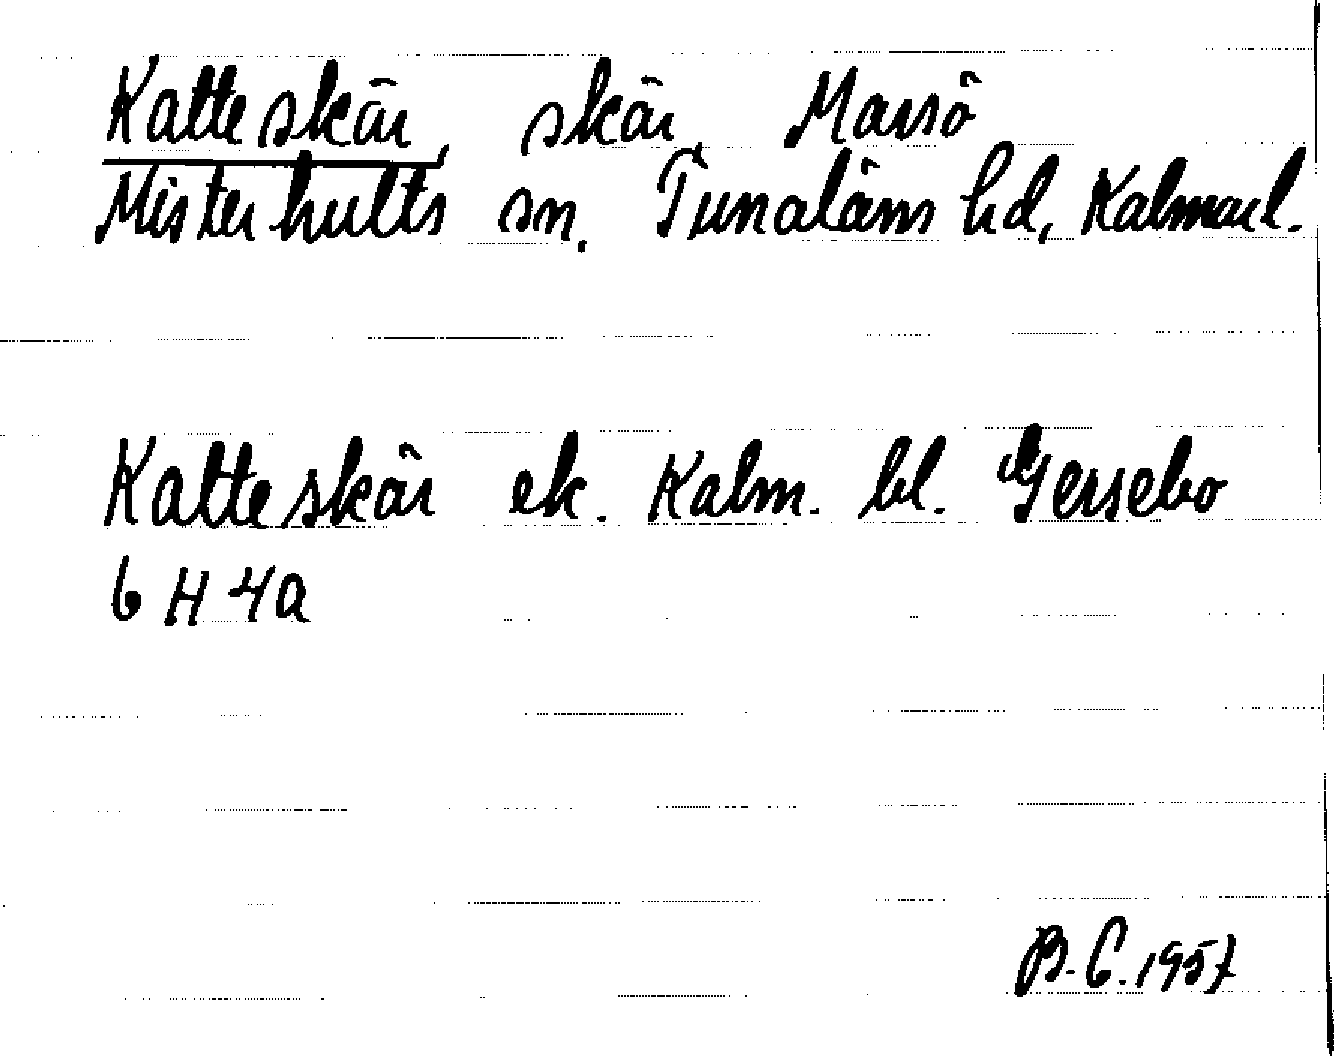 Katteskär, skär, Marsö
Misterhults sn. Tunaläns hd, Kalmarl.
Katteskär ek. Kalm. bl. Gersebo
6 H 4a
B. G. 1957